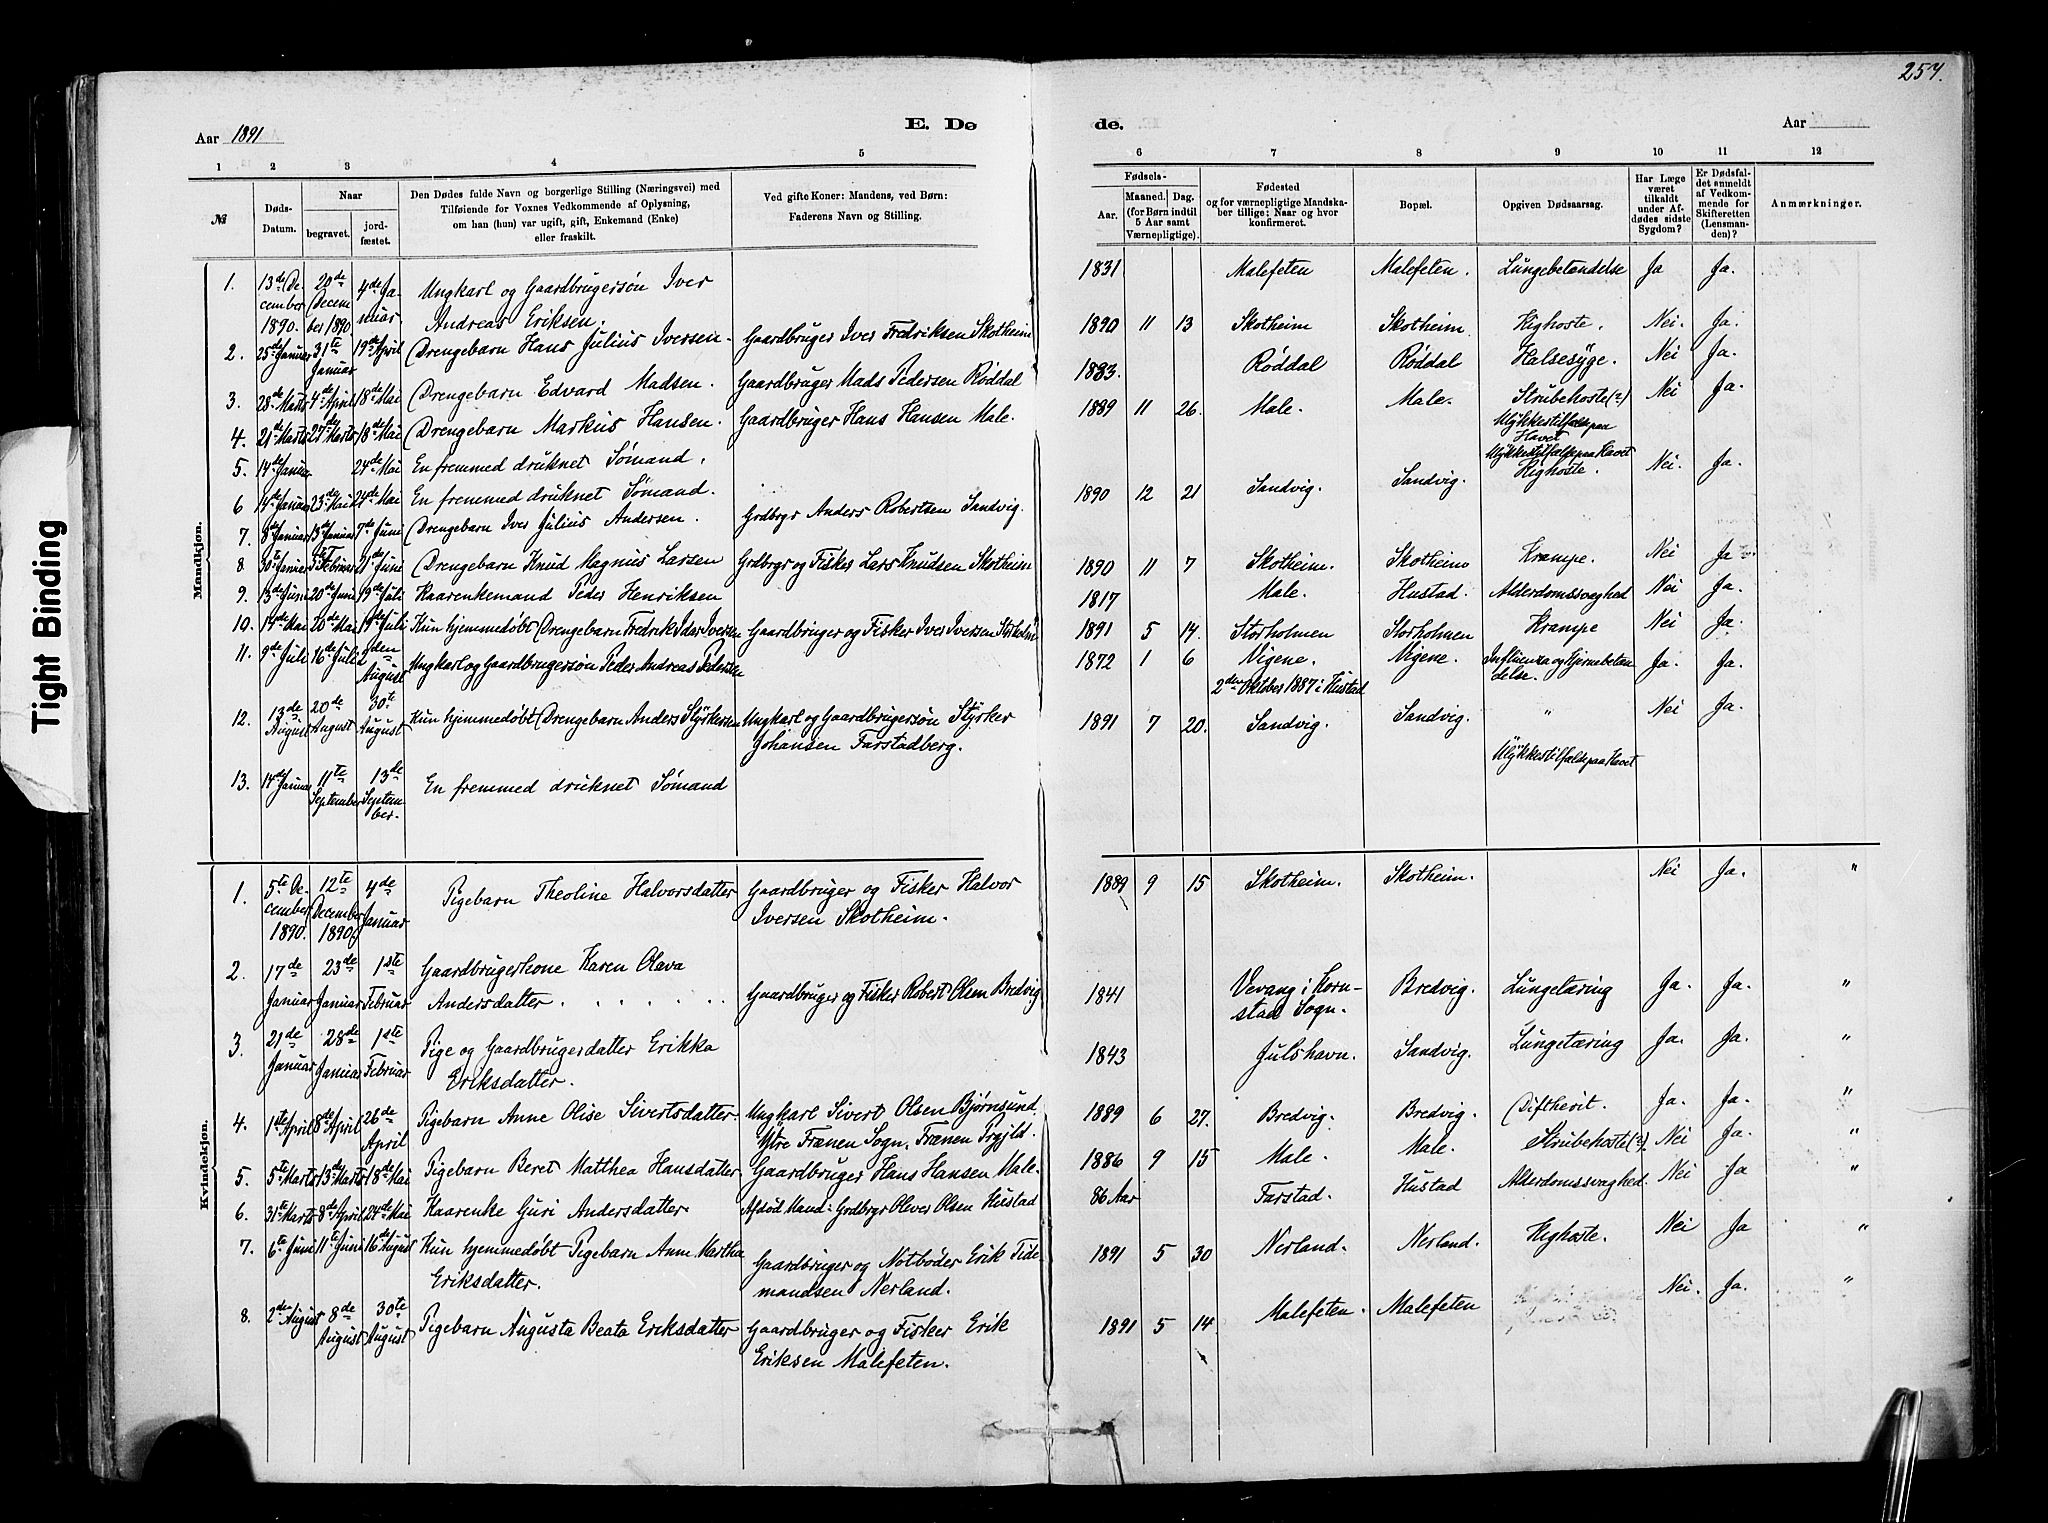 257.
Aar 1891
E. Dø
de.
Aar
1 2 3 4 5
6 7 8 9 10 11 12
№
Døds-Datum.
Naar
begravet.
jordfæstet.
Den Dødes fulde Navn og borgerlige Stilling (Næringsvei) med
Tilføiende for Voxnes Vedkommende af Oplysning,
om han (hun) var ugift, gift, Enkemand (Enke)
eller fraskilt.
Ved gifte Koner: Mandens, ved Børn:
Faderens Navn og Stilling.
Fødsels-
Aar.
Maaned. Dag.
(for Børn indtil
5 Aar samt
Værnepligtige).
Fødested
og for værnepligtige Mandska-
ber tillige: Naar og hvor
konfirmeret.
Bopæl.
Opgiven Dødsaarsag.
Har Læge
været
tilkaldt
under Af-
dødes sidste
Sygdom?
Er Dødsfal-
det anmeldt
af Vedkom-
mende for
Skifteretten
(Lensman-
den)?
Anmærkninger.
Mandkjøn.
1. 13de December 1890. 20de December 1890 4de Januar. Ungkarl og Gaardbrugersøn Iver
Andreas Eriksen. 1831 Malefeten Malefeten. Lungebetændelse Ja Ja.
2. 25de Januar 31te Januar 19de April Drengebarn Hans Julius Iversen. Gaardbruger Iver Fredriksen Skotheim 1890 11 13 Skotheim Skotheim. Kighoste. Nei. Ja.
3. 28de Marts 4de April 18de Mai Drengebarn Edvard Madsen. Gaardbruger Mads Pedersen Røddal 1883. Røddal Røddal Halsesyge. Nei Ja.
4. 21de Marts 27de Marts 18de Mai Drengebarn Markus Hansen. Gaardbruger Hans Hansen Male. 1889 11 26. Male. Male. Strubehoste (?) Nei Ja.
5. 14de Januar 24de Mai En fremmed druknet Sømand. Ulykkestilfælde paa Havet
6 14de Januar 23de Mai 24de Mai En fremmed druknet Sømand. Ulykkestilfælde paa Havet
7. 8de Januar 13de Januar 7de Juni Drengebarn Iver Julius Andersen. Grdbrgr Anders Robertsen Sandvig. 1890 12 21 Sandvig. Sandvig. Kighoste. Nei. Ja.
8 30te Januar 5te Februar 21de Juni Drengebarn Knud Magnus Larsen Grdbrgr og Fisker Lars Knudsen Skotheim 1890 11 7 Skotheim. Skotheim Krampe. Nei Ja
9. 13de Juni 20de Juni 19de Juli Kaarenkemand Peder Henriksen 1817 Male. Hustad. Alderdomssvaghed Nei Ja.
10. 14de Mai 20de Mai 19de Juli Kun hjemmedøbt Drengebarn Fredrik Idar Iversen Gaardbruger og Fisker Iver Iversen Storholm 1891 5 14. Storholmen Storholmen Krampe Nei Ja.
11. 9de Juli 16de Juli 9den August Ungkarl og Gaardbrugersøn Peder Andreas Pedersen 1872 1 6 Vigene. Vigene. Influenza og Hjernebetændelse. Ja. Ja.
2den Oktober 1887 i Hustad
12. 13de August 20de August 30te August Kun hjemmedøbt Drengebarn Anders Styrkersen Ungkarl og Gaardbrugersøn Styrker
Johansen Farstadberg. 1891 7 20. Sandvig. Sandvig. " Nei Ja.
13. 14de Januar 11te September 13de September. En fremmed druknet Sømand Ulykkestilfælde paa Havet
Kvindekjøn.
1. 5te December 1890. 12te December 1890. 4de Januar Pigebarn Theoline Halvorsdatter Gaardbruger og Fisker Halvor
Iversen Skotheim. 1889 9 15 Skotheim. Skotheim. Nei Ja. "
2. 17de Januar 23de Januar 1ste Februar Gaardbrugerkone Karen Olava
Andersdatter . . . . . . Gaardbruger og Fisker Robert Olsen Bredvig 1841 Vevang i Korn-
stad Sogn. Bredvig. Lungetæring Ja. Ja. "
3. 21de Januar 28de Januar 1ste Februar Pige og Gaardbrugerdatter Erikka
Eriksdatter. 1843 Julshavn. Sandvig. Lungetæring Ja. Ja. "
4. 1ste April 8de April 26de April Pigebarn Anne Olise Sivertsdatter. Ungkarl Sivert Olsen Bjørnsund
Ytre Frænen Sogn, Frænen Prgjld. 1889 6 27. Bredvig. Bredvig. Diftherit. Ja. Ja. "
5. 5te Marts 13de Marts 18de Mai Pigebarn Beret Matthea Hansdatter Gaardbruger Hans Hansen Male. 1886 9 15 Male. Male. Strubehoste (?). Nei Ja. "
6. 31te Marts 8de April 24de Mai Kaarenke Guri Andersdatter Afdød Mand: Grdbrgr Oliver Olsen Hustad 86 Aar Farstad. Hustad Alderdomssvaghed. Nei Ja "
7. 6te Juni 11te Juni 16de August Kun hjemmedøbt Pigebarn Anne Martha
Eriksdatter. Gaardbruger og Notbøder Erik Tide-
mandsen Nerland. 1891 5 30 Nerland. Nerland. Kighoste. Nei Ja "
8. 2de August 8de August 30te August Pigebarn Augusta Beata Eriksdatter Gaardbruger og Fisker Erik
Eriksen Malefeten. 1891 5 14. Malefeten. Malefeten Nei. Ja. "
Tight Binding